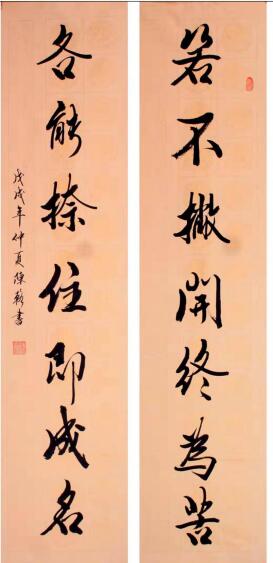 若不撇開終為苦
各能捺住即成名
戊戌年仲夏陳書